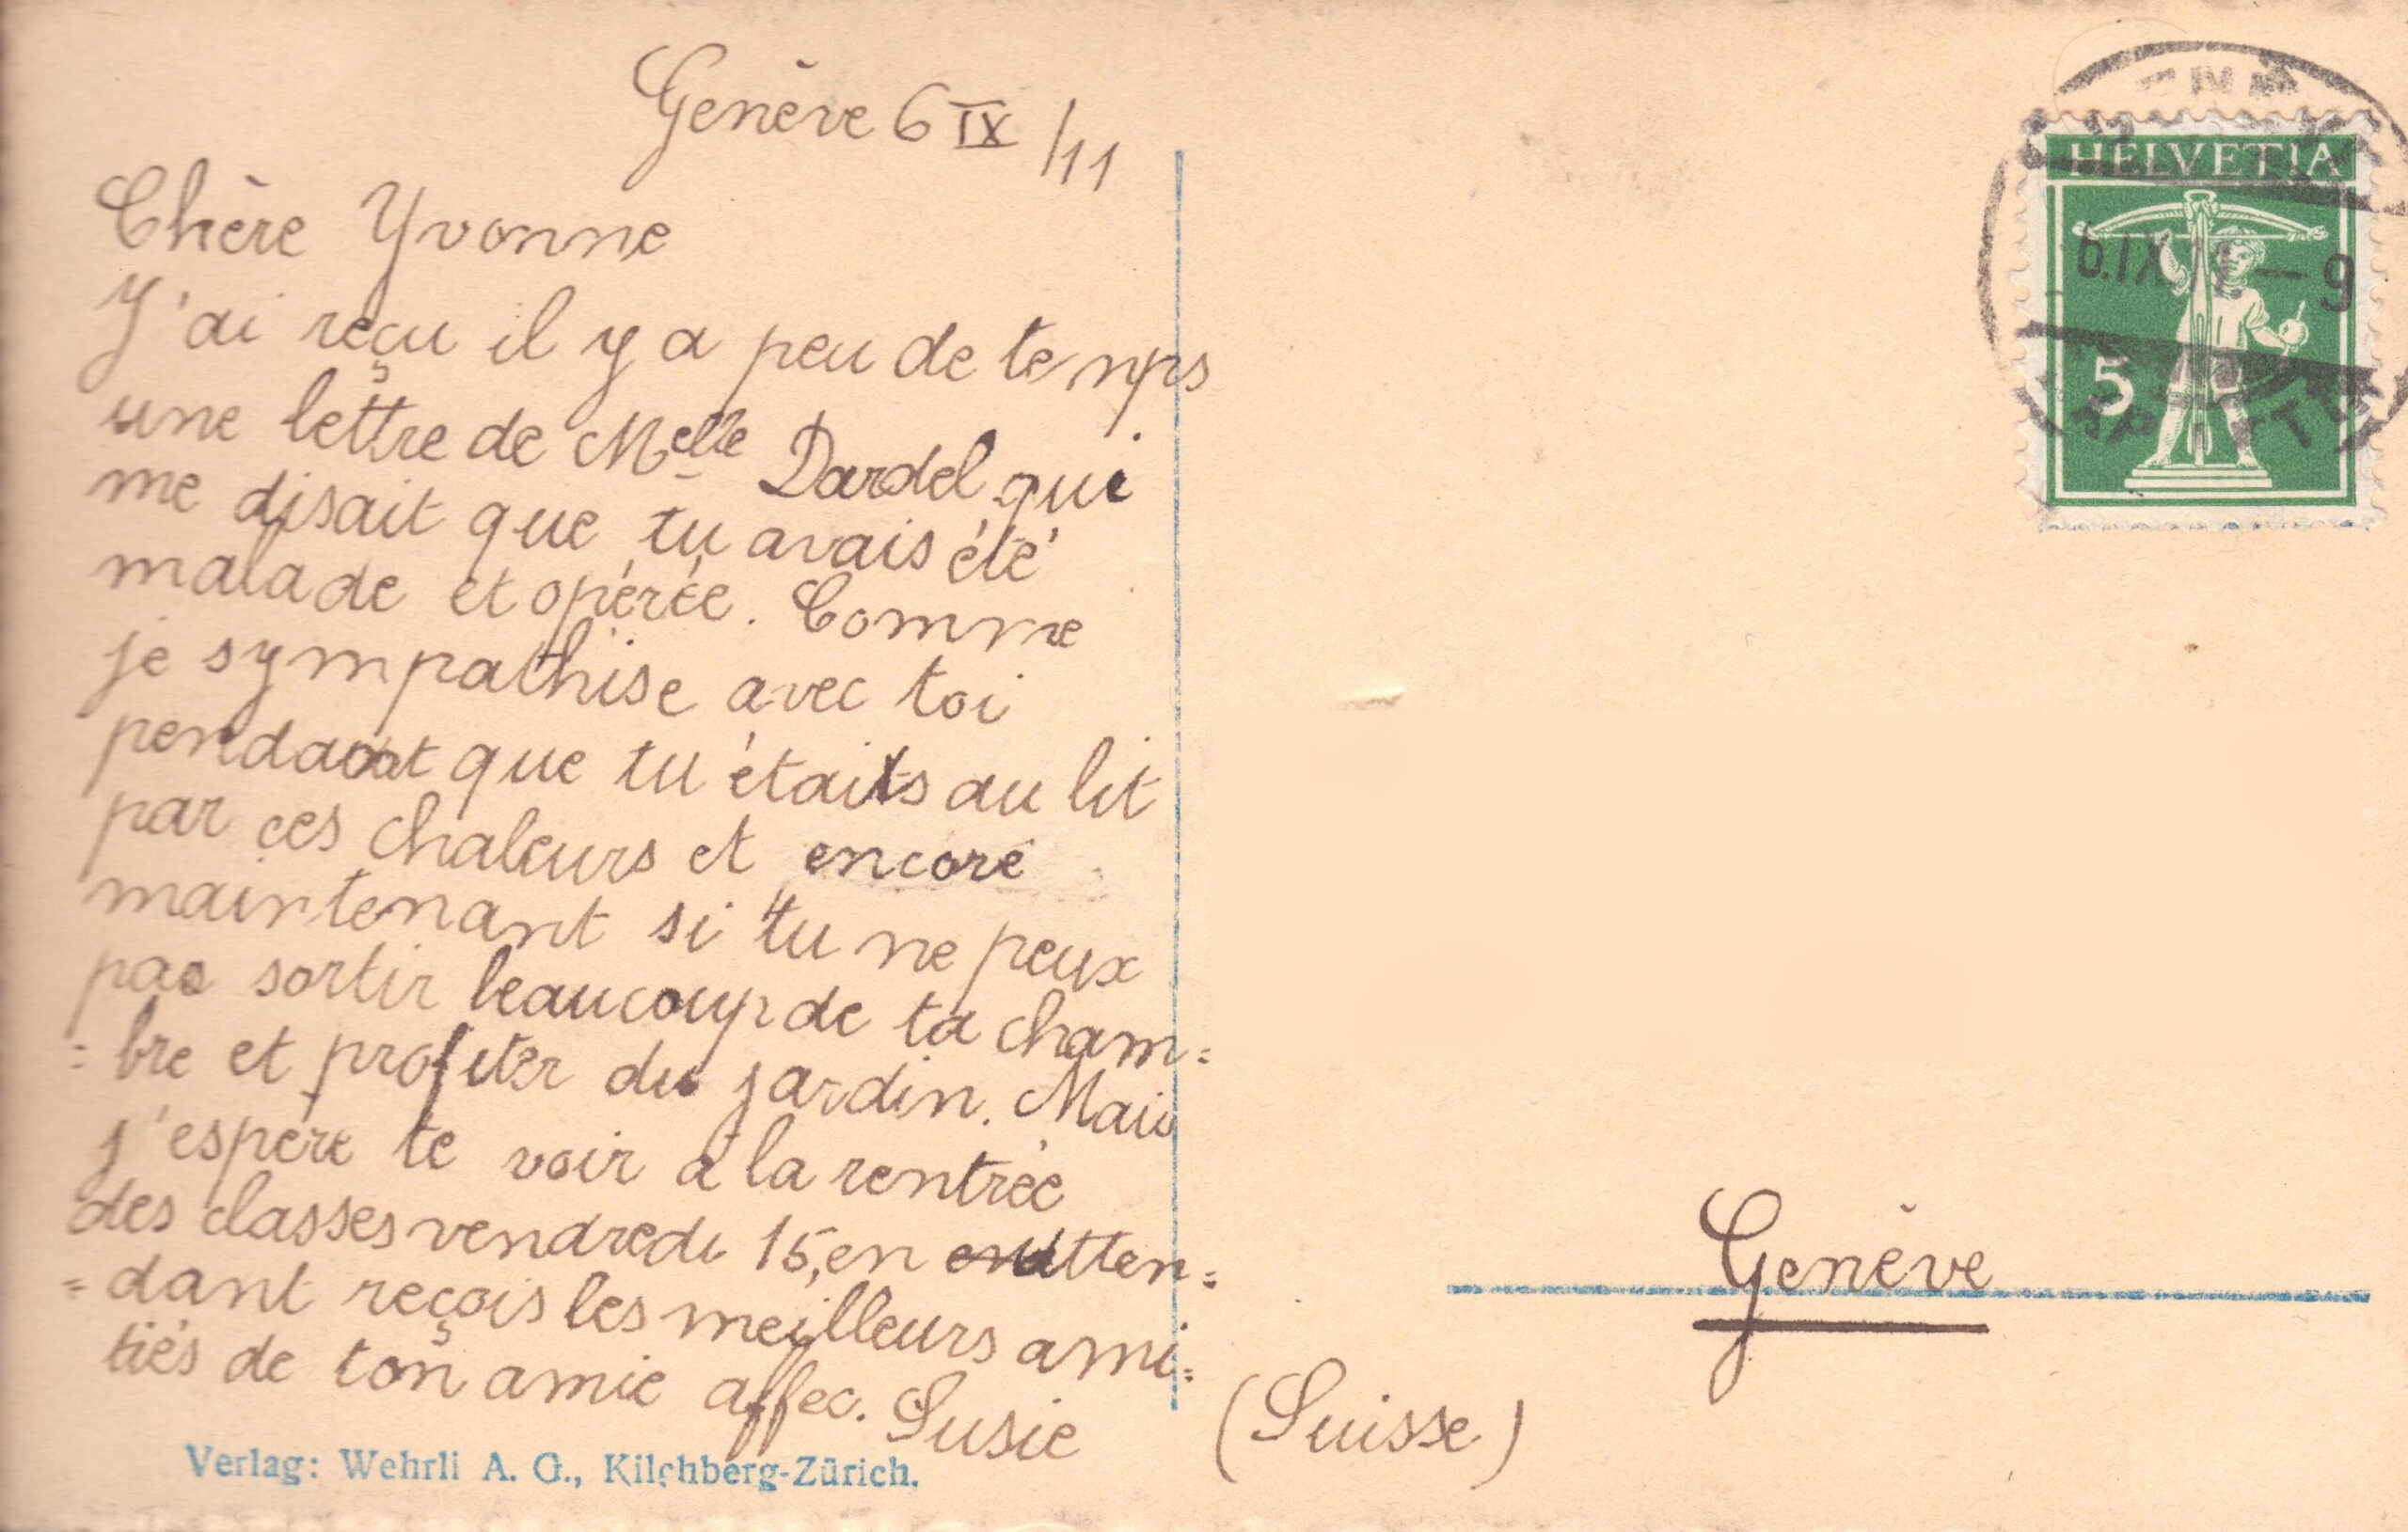 Genève 6 IX /11
Chère Yvonne
J'ai reçu il y a peu de temps
une lettre de Melle Dardel qui
me disait que tu avais été
malade et opérée. Comme
je sympathise avec toi
pendant que tu étaits au lit
par ces chaleurs et encore
maintenant si tu ne peux
pas sortir beaucoup de ta cham=
=bre et profiter du jardin. Mais
j'espère te voir à la rentrée
des classes vendredi 15, en atten=
=dant reçois les meilleurs ami=
tiés de ton amie affec. Susie
Verlag: Wehrli A. G., Kilchberg-Zürich.
HELVETIA
6.IX 11 - 9
5
Genève
(Suisse)